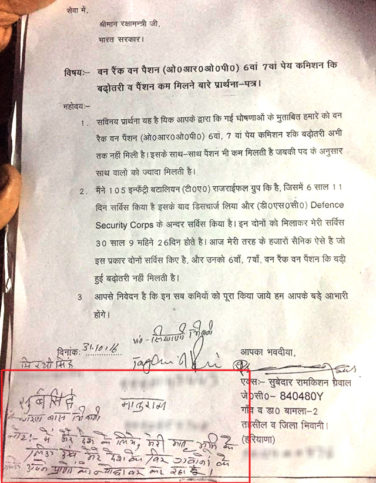 सेवा में,
श्रीमान रक्षामन्त्री जी,
भारत सरकार।
विषयः– वन रैंक वन पैंशन (ओ०आर०ओ०पी०) 6वां 7वां पेय कमिशन कि
बढ़ोतरी व पैंशन कम मिलने बारे प्रार्थना–पत्र।
महोदय:–
1. सविनय प्रार्थना यह है यिक आपके द्वारा कि गई घोषणाओं के मुताबित हमारे को वन
रैक वन पैंशन (ओ०आर०ओ०पी०) 6वां, 7 वां पेय कमिशन शकि बढ़ोतरी अभी
तक नही मिली है। इसके साथ–साथ पैंशन भी कम मिलती है जबकी पद के अनुसार
साथ वालो को ज्यादा मिलती है।
2. मैंने 105 इन्फेंट्री बटालियन (टी०ए०) राजराईफल ग्रुप कि है, जिसमें 6 साल 11
दिन सर्विस किया है इसके याद डिसचार्ज लिया और (डी०एस०सी०) Defence
Security Corps के अन्दर सर्विस किया है। इन दोनों को मिलाकर मेरी सर्विस
30 साल 9 महिने 26दिन होते है। आज मेरी तरह के हजारों सैनिक ऐसे है जो
इस प्रकार दोनों सर्विस किए है, और उनको 6वाँ, 7वाँ, वन रैंक वन पैंशन कि बढ़ी
हुई बढ़ोतरी नही मिलती है।
3 आपसे निवेदन है कि इन सब कमियों को पूरा किया जाये हम आपके बड़े आभारी
होगे।
दिनांकः 31.10.16
आपका भवदीया,
एक्सः– सुबेदार रामकिशन ग्रेवाल
जे०सी०– 840480Y
गाँव व डा० बामला–2
तहसील व जिला भिवानी।
(हरियाणा)
नोट:– मैं मेरे देश के लिए, मेरी मातृ भूमि के
लिए एवं मेरे देश के वीर जवानों के